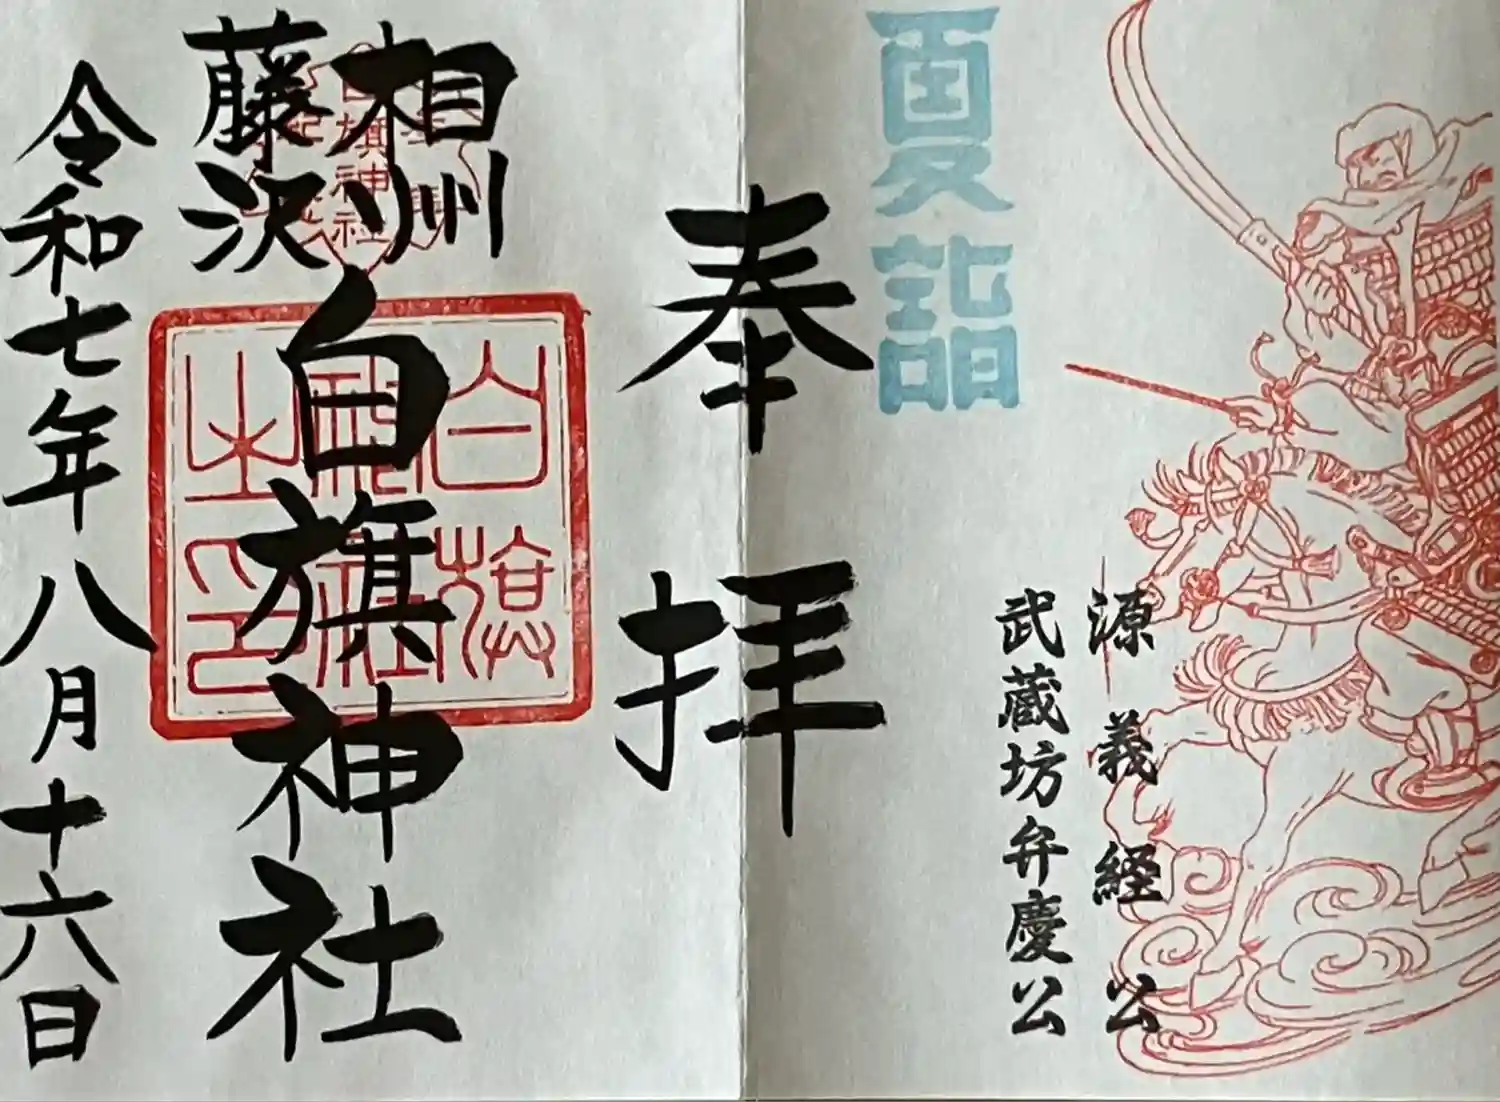 夏詣
源義経公
武蔵坊弁慶公
奉拝
相州
藤沢
白旗神社
白旗神社
白旗
神社
之印
令和七年八月十六日